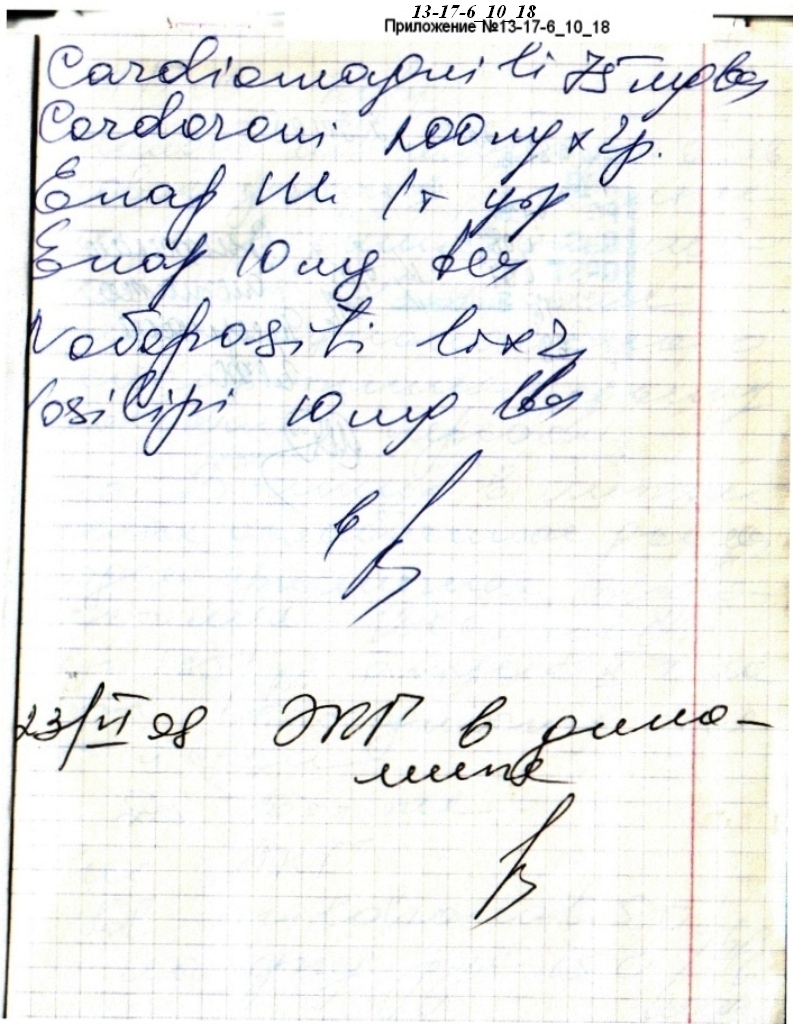 13-17-6_10_18
Приложение №13-17-6_10_18
Cardiomagnili 75 mg вв
Cordaroni 200mg x 2р.
Enap HL 1т утр
Enap 10 mg веч
Nobepositi li x 2
Vosilipi 10 mg вв
23/VI 08 ЭКГ в дина-
мике